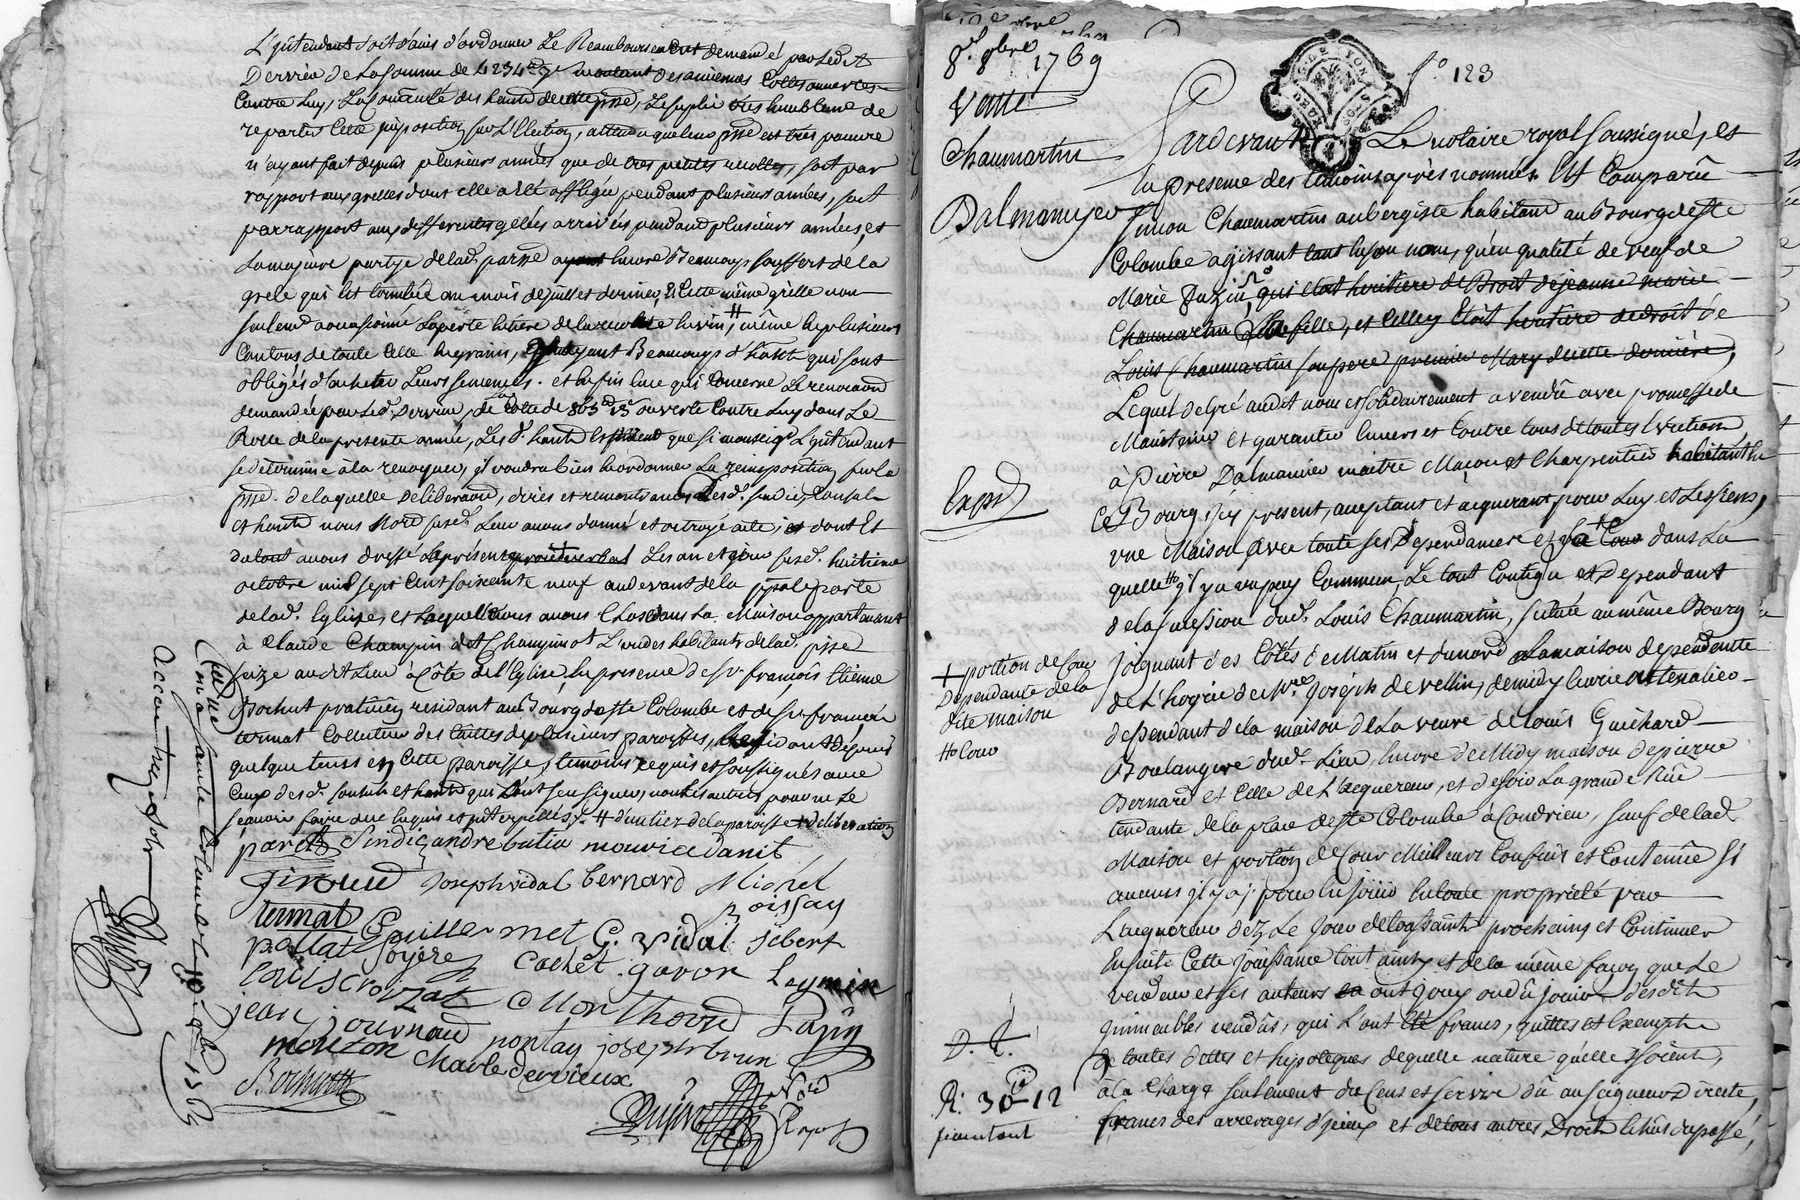 L'intendant soit d'avis d'ordonner Le Rembourcement demandé par led.t
Dervieu de la somme de 4234 montant des anciennes Cottes ouvertes
Contre luy, La Communauté des habitants Le suplie très humblement de
repartir cette imposition sur L'Election, attendu que leur psse est très pauvre
n'ayant fait depuis plusieurs années que de très petites recoltes, soit par
rapport aux greles dont elle a été affligée pendant plusieurs années, soit
par rapport aux differentes gelées arrivées pendant plusieurs années, et
La majeure partye de lad. parsse ayant encore Beaucoup souffert de la
grele qui est tombée au mois de juillet dernier, Cette même grelle non
seulem.t occasionné La perte entiere de la recolte en vin, # même en plusieurs
Cantons de toute celle en grains, y ayant Beaucoup d'habt qui sont
obligés d'acheter Leurs semences. et enfin en ce qui Concerne
demandée par led. Dervieu, de la Cotte de 863 ouverte Contre luy dans Le
Rolle de la presente année, Les d. habitants que si monseig.r L'intendant
se determine à la revoquer, il voudra bien en ordonner La reimposition sur la
psse. de laquelle deliberation, dires et remontrances Lesd. sindic, Consuls
et habitants nous Nore susd. Leur avons donné et octroyé acte, et dont Et
du tout avons dressé Le présent procès verbal Les an et jour susd. huitieme
octobre mil sept Cent soixante neuf au devant de la ppale porte
de lad. Eglise, et laquelle nous avons Close dans La Maison appartenant
à Claude Champin dit Champinot L'un des habitants de lad. psse
size aud.t Lieu à Côté de l'Eglise, En presence de sr françois Etienne
Bochut praticien residant au Bourg de Ste Colombe et de sr françois
termat Collecteur des tailles de plusieurs paroisses, residant depuis
quelque tems en cette paroisse, témoins requis et soussignés avec
Ceux desd. Consuls et habitants qui Ont sceu signer, non les autres pour ne le
sçavoir faire de ce enquis et interpellés. # d'un tiers de la paroisse + deliberation
paret Sindic andre butin mouricedanit
Giroud Joseph vidal bernard Michel
termat Guillermet G. vidal Boissan Sibert
pallat Goyère Cachet gavon Leymin
Louis croizat C Monthoud Payin
jean journoud nontay joseph brun
mouzon Charle dervieux
Bochutt
Dujin Noré Royal
Controllé à Sainte Colombe le 10 8bre 1769
8. 8bre 1769
Vente
Chaumartin
Dalmanuyer
Expd
f.o 123
G. DE LYON
DEUX SOLS
Pardevant Le notaire royal soussigné, et
En presence des témoins après nommés Est Comparû
Simon Chaumartin aubergiste habitant au Bourg de Ste
Colombe agissant tant en son nom, qu'en qualité de veuf de
Marie Puzin, qui etoit heritiere de Droit de jeanne marie
Chaumartin sa fille, et celle cy Etoit heritiere de droit de
Louis Chaumartin son pere premier Mary de cette derniere,
Lequel de gré audit nom et solidairement a vendû avec promesse de
Maintenir et garantir Envers et Contre tous de toutes Evictions
à Pierre Dalmanier maitre Maçon et Charpentier habitant en
Ce Bourg icy present, acceptant et acquerant pour Luy et Les siens,
une Maison avec toute ses Dependances et sa + Cour dans La
quelle # il y a un puy Commun, Le tout Contigu et Dependant
de la Succession dud. Louis Chaumartin, située au même Bourg
joignant des Côtés de Matin et du nord La maison dependante
de L'hoyrie de Mre Joseph de vellin, de midy
dependant de la maison de La veuve de Louis Guichard
Boulangere dud. Lieu, encore de Midy maison de pierre
Bernard et Celle de L'acquereur, et de soir La grande Rüe
tendante de la place de Ste Colombe à Condrieu, sauf de lad.
Maison et portion de Cour Meilleurs Confins et Contenûe si
aucuns il y a, pour en jouir en toute proprieté par
L'acquereur dez Le Jour de la Toussaint prochains et Continuer
Ensuite Cette jouissance tout ainsy et de la même façon que Le
vendeur et ses auteurs en ont jouy ou dû jouir. desdits
immeubles vendûs, qui L'ont été francs, quittes et Exempts
de toutes dettes et hypoteques de quelle nature qu'elle soient,
à la Charge seulement du Cens et servis dû au seigneur Directe,
francs des arrerages d'yceux et de tous autres Droits Echûs du passé,
+ portion de Cour
Dependante de la
dite maison
# Cour
D. C.
R. 30 – 12